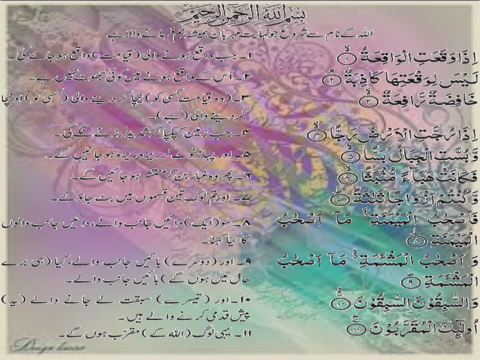 بِسْمِ اللّٰهِ الرَّحْمٰنِ الرَّحِيْمِ
اللہ کے نام سے شروع جو نہایت مہربان ہمیشہ رحم فرمانے والا ہے
اِذَا وَقَعَتِ الْوَاقِعَةُ ۙ‏﴿۱﴾
۱۔ جب واقع ہونے والی (قیامت) واقع ہو جائے گی۔
لَيْسَ لِوَقْعَتِهَا كَاذِبَةٌ ۘ‏﴿۲﴾
۲۔ اُس کے واقع ہونے میں کوئی جھوٹ نہیں ہے۔
خَافِضَةٌ رَّافِعَةٌ ۙ‏﴿۳﴾
۳۔ (وہ قیامت کسی کو) نیچا کر دینے والی (کسی کو) اونچا
کر دینے والی (ہے)۔
اِذَا رُجَّتِ الْاَرْضُ رَجًّا ۙ‏﴿۴﴾
۴۔ جب زمین کپکپا کر شدید لرزنے لگے گی۔
وَّ بُسَّتِ الْجِبَالُ بَسًّا ۙ‏﴿۵﴾
۵۔ اور پہاڑ ٹوٹ کر ریزہ ریزہ ہو جائیں گے۔
فَكَانَتْ هَبَآءً مُّنْۢبَثًّا ۙ‏﴿۶﴾
۶۔ پھر وہ غبار بن کر منتشر ہو جائیں گے۔
وَّ كُنْتُمْ اَزْوَاجًا ثَلٰثَةً ؕ‏﴿۷﴾
۷۔ اور تم لوگ تین قسموں میں بٹ جاؤ گے۔
فَاَصْحٰبُ الْمَيْمَنَةِ ۙ مَاۤ اَصْحٰبُ
الْمَيْمَنَةِ ؕ‏﴿۸﴾
۸۔ سو (ایک) دائیں جانب والے، دائیں جانب والوں
کا کیا کہنا۔
وَ اَصْحٰبُ الْمَشْـَٔمَةِ ۙ مَاۤ اَصْحٰبُ
الْمَشْـَٔمَةِ ؕ‏﴿۹﴾
۹۔ اور (دوسرے) بائیں جانب والے، کیا (ہی برے
حال میں ہوں گے) بائیں جانب والے۔
وَ السّٰبِقُوْنَ السّٰبِقُوْنَ ۚ‏﴿۱۰﴾
۱۰۔ اور (تیسرے) سبقت لے جانے والے (یہ)
پیش قدمی کرنے والے ہیں۔
اُولٰٓئِكَ الْمُقَرَّبُوْنَ ۚ‏﴿۱۱﴾
۱۱۔ یہی لوگ (اللہ کے) مقرّب ہوں گے۔